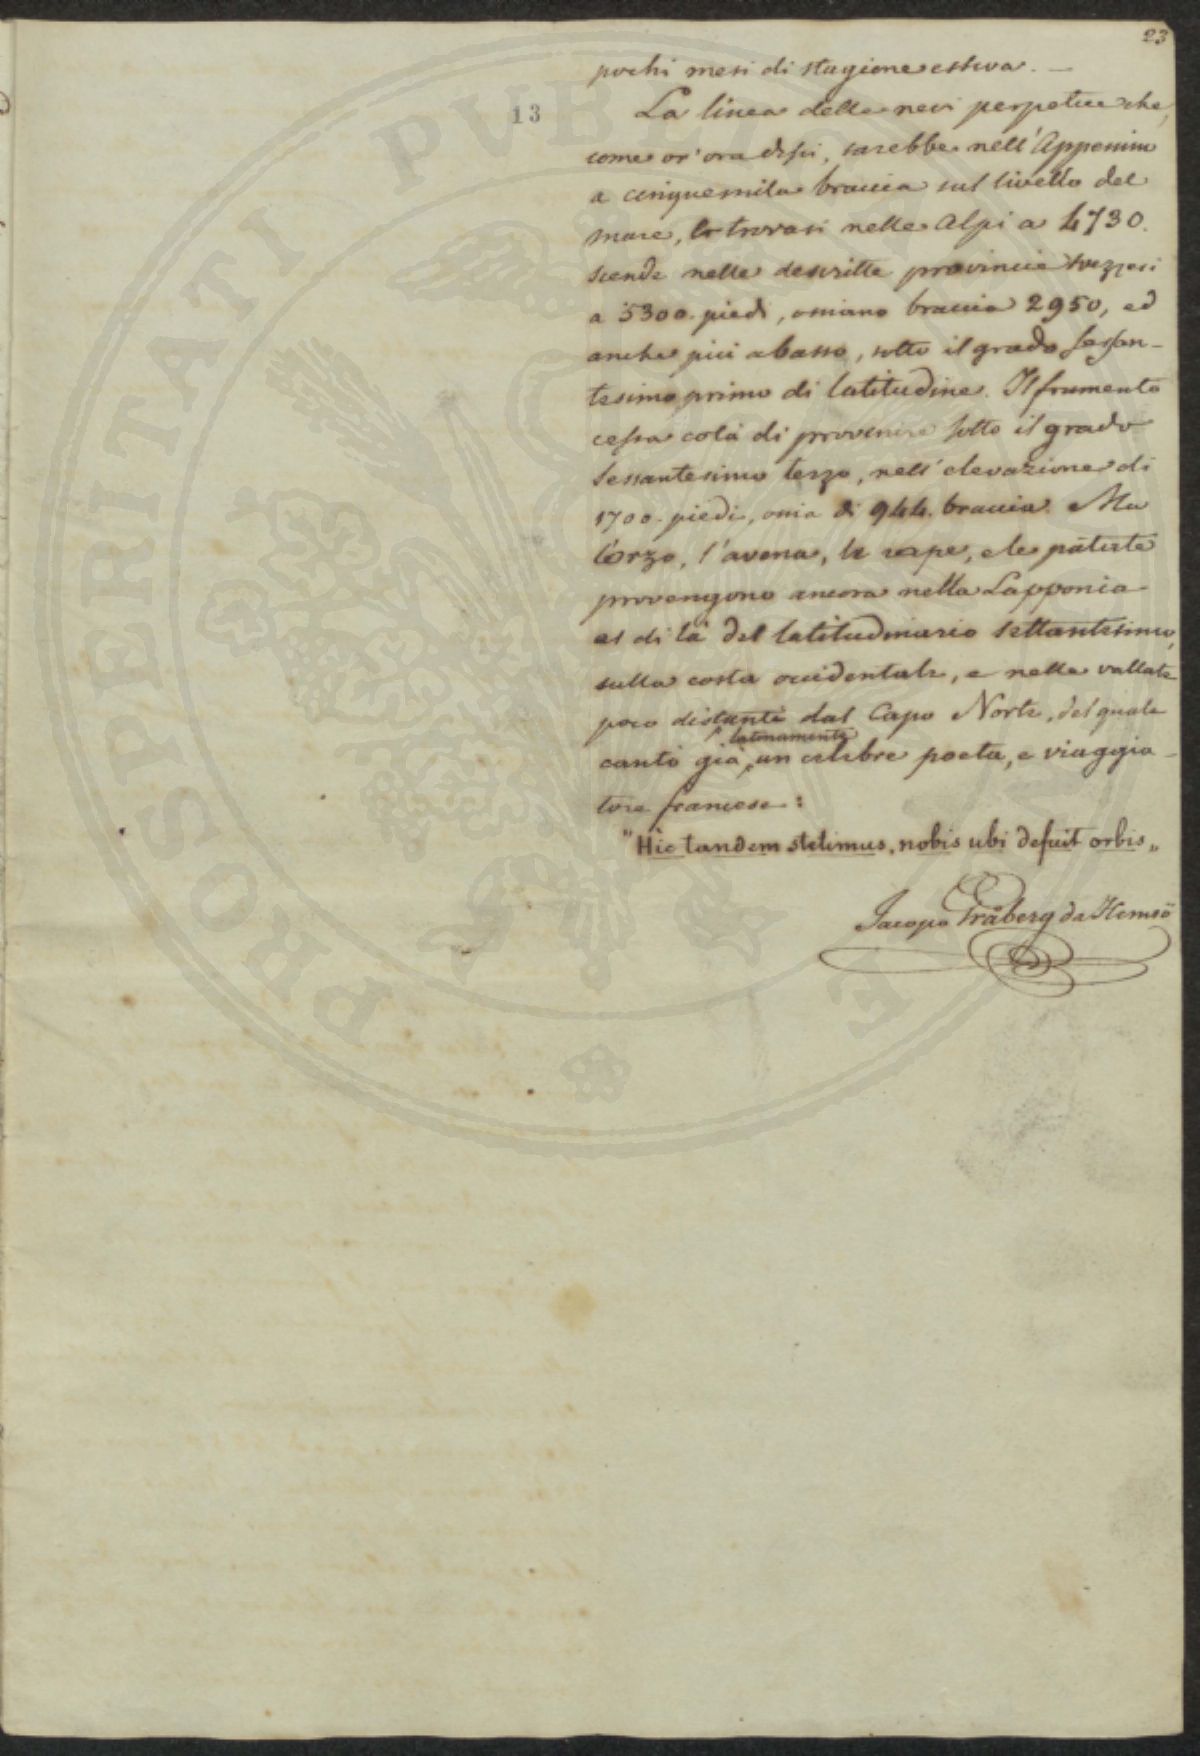 23
13
pochi mesi di stagione estiva. —
La linea delle nevi perpetue che,
come or' ora dissi, sarebbe nell' Appennino
a cinquemila braccia sul livello del
mare, trovasi nelle Alpi a 4730.
scende nelle descritte provincie svezzesi
a 5300. piedi, ossiano braccia 2950, ed
anche più abasso, sotto il grado sessan-
tesimo primo di latitudine. Il frumento
cessa colà di provenire sotto il grado
sessantesimo terzo, nell' elevazione di
1700. piedi, ossia di 944. braccia. Ma
l'orzo, l'avena, le rape, e le patate
provengono ancora nella Lapponia
al di là del latitudinario settantesimo,
sulla costa occidentale, e nelle vallate
poco distanti dal Capo Norte, del quale
latinamente
cantò già un celebre poeta, e viaggia-
tore francese:
"Hic tandem stetimus, nobis ubi defuit orbis„
Jacopo Gråberg da Hemsö
PROSPERITATI PUBLICAE